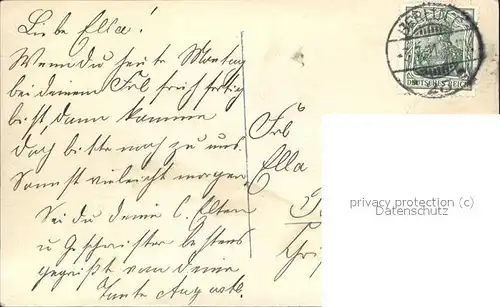 Liebe Ella!
Wenn Du heute Montag
bei deinem Frl früh fertig
bist, dann komme
doch bitte noch zu uns.
Sonst vieleicht morgen.
Sei du deine l. Eltern
u Geschwister bestens
gegrüßt von deine
Tante August
Frl
Ella
DEUTSCHES REICH
privacy protection (c)
Datenschutz